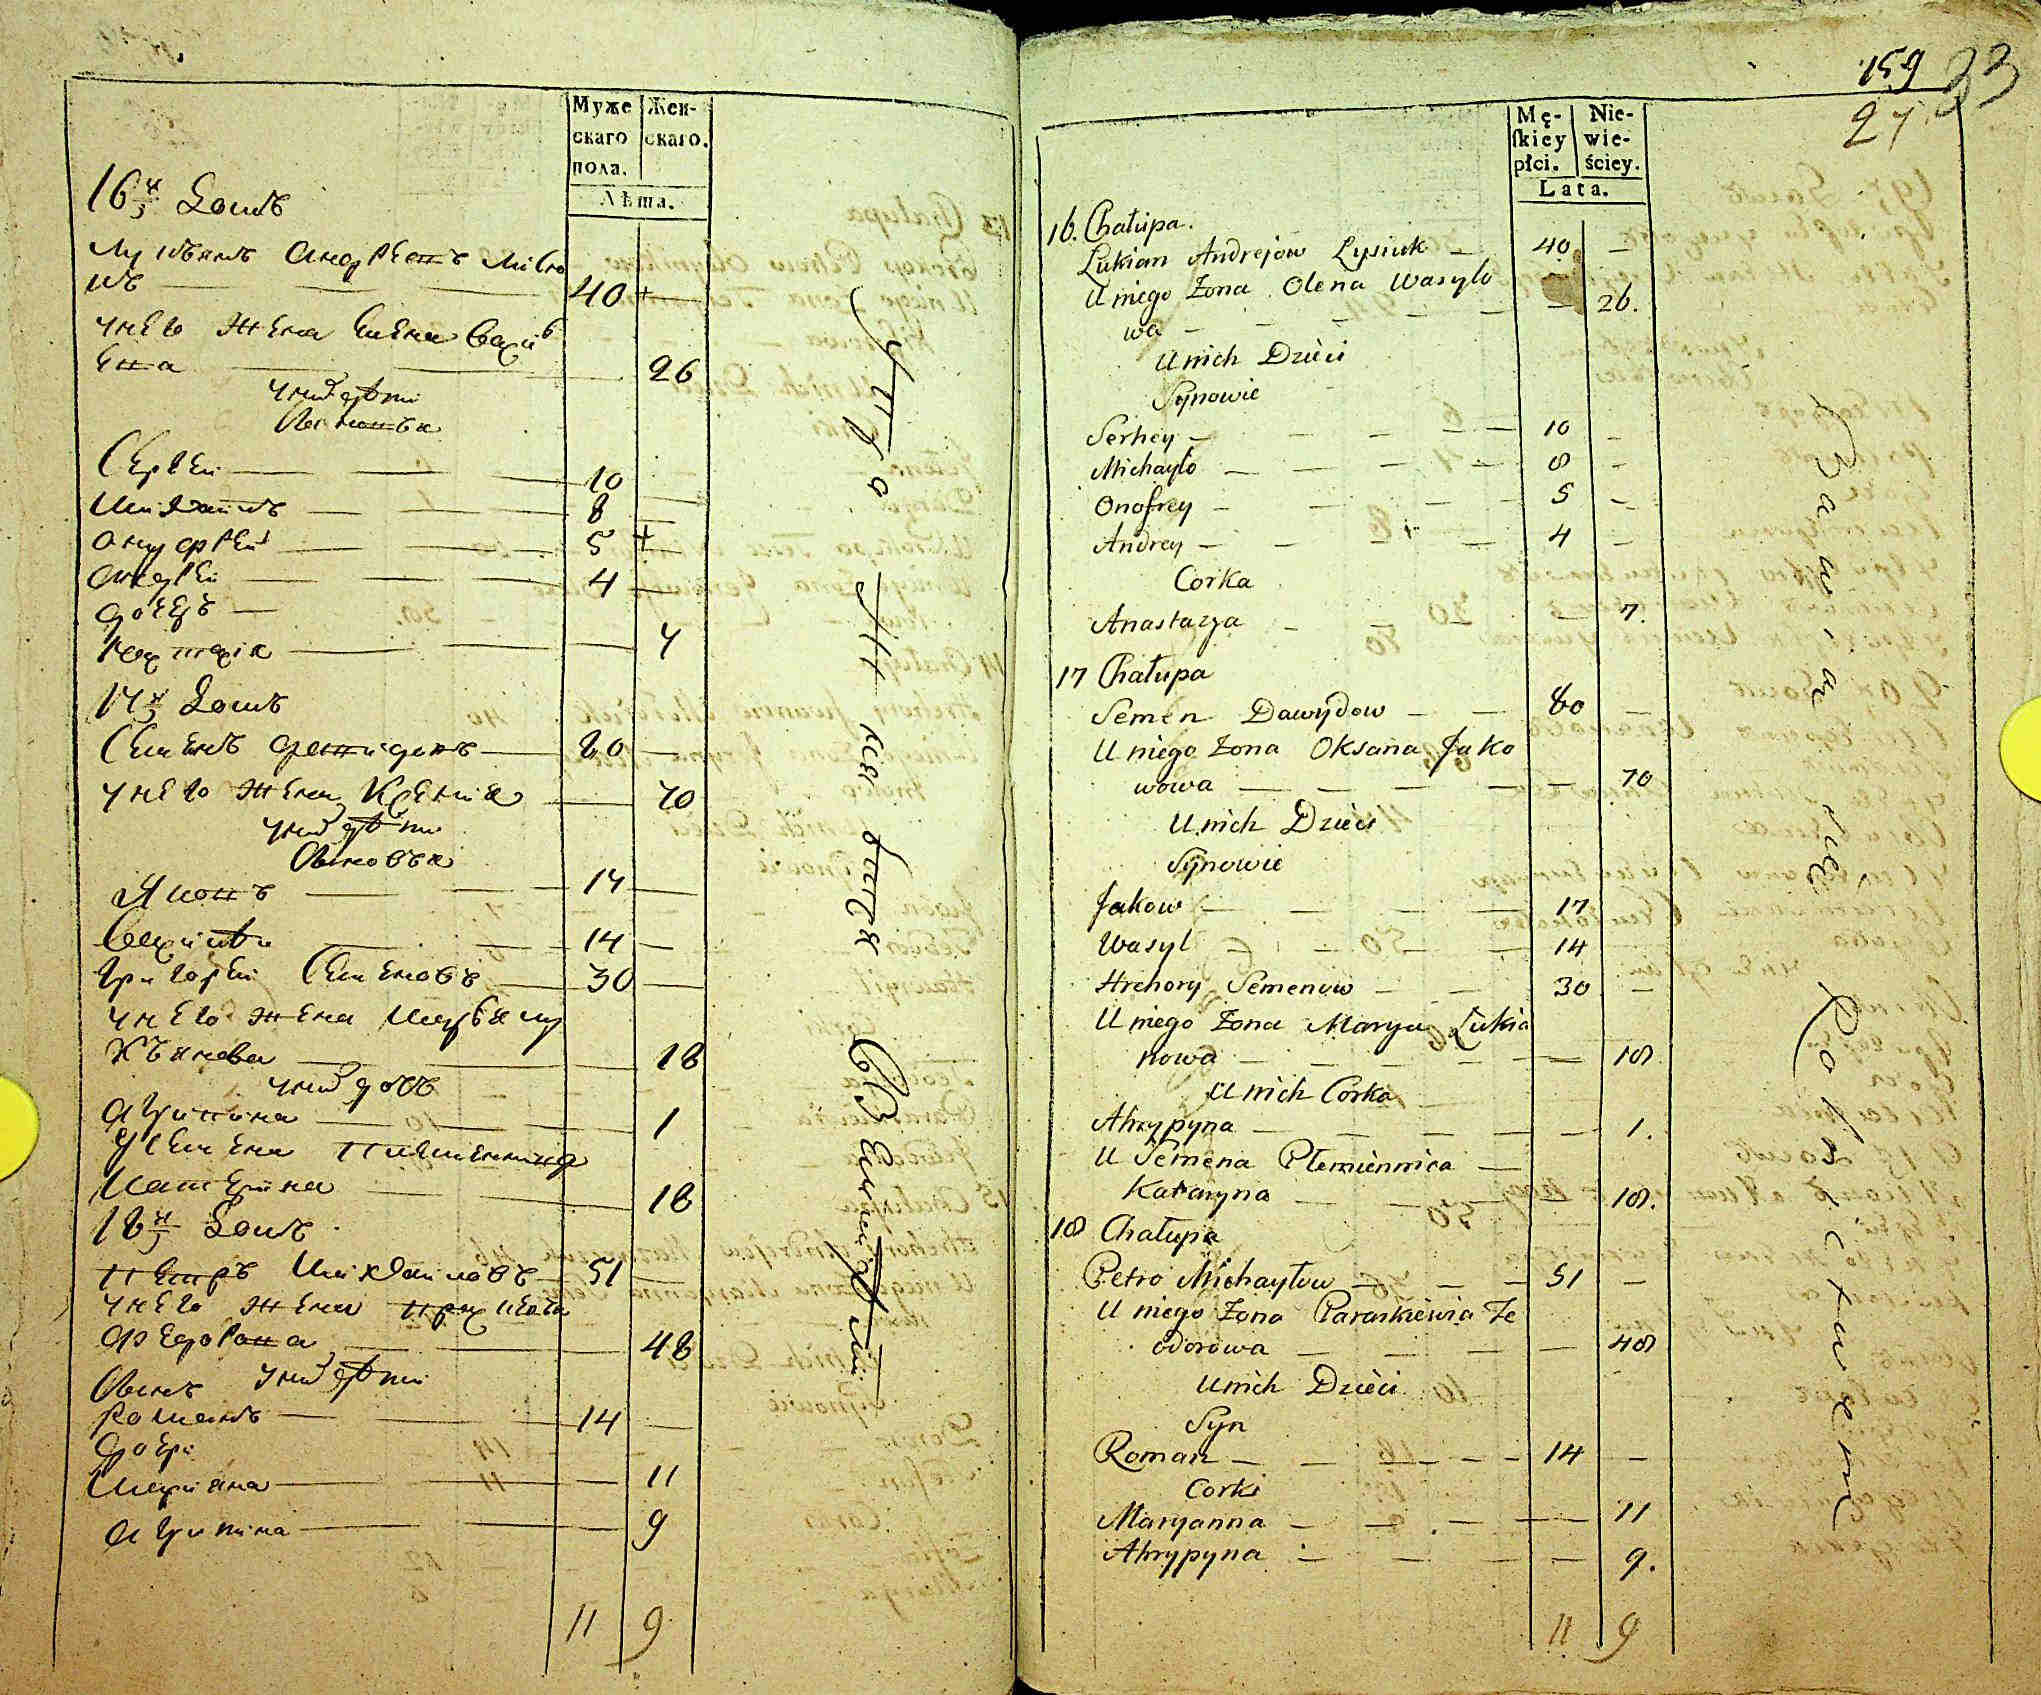 Муже
скаго
пола.
Жен-
скаго.
Лѣта.
16й Домъ
Лукьянъ Андреевъ Лисю
къ 40 +
у него жена Елена Васил
ева 26
у них дѣти
Сыновья
Сергей 10
Михайлъ 8
Ануфрей 5 +
Андрей 4
дочерь
Настасія 7
17й Домъ
Семенъ Давидовъ 80
у него жена Ксения 70
у них дѣти
Сыновья
Яковъ 17
Василей 14
Григорей Семеновъ 30
у него жена Марья Лу
кьянова 18
у них дочь
Агрипина 1
у Семена племенница
Катерина 18
18й Домъ
Петръ Михайловъ 51
у него жена Прасковья
Федорова 48
у них дѣти
Сынъ
Романъ 14
дочери
Мариана 11
Агрипина 9
11 9
159
23
27
Mę-
ſkiey
płci.
Nie-
wie-
ściey.
Lata.
16. Chałupa.
Łukian Andrejow Lysiuk — 40 —
U niego Żona Olena Wasylo
wa — 26.
U nich Dzieci
Synowie
Serhey — 10 —
Michayło — 8 —
Onofrey — 5 —
Andrey — 4 —
Corka
Anastazya — 7.
17 Chałupa
Semen Dawydow — 80 —
U niego Żona Oksana Jako
wowa — 70
U nich Dzieci
Synowie
Jakow — 17
Wasyl — 14
Hrehory Semenow — 30 —
U niego Żona Marya Łukia
nowa — 18
U nich Corka
Ahrypyna — 1.
U Semena Plemiennica —
Kataryna — 18.
18 Chałupa
Petro Michayłow — 51 —
U niego Żona Paraskiewia Fe
odorowa — 48
U nich Dzieci
Syn
Roman — 14 —
Corki
Maryanna — 11
Ahrypyna — 9.
11 9